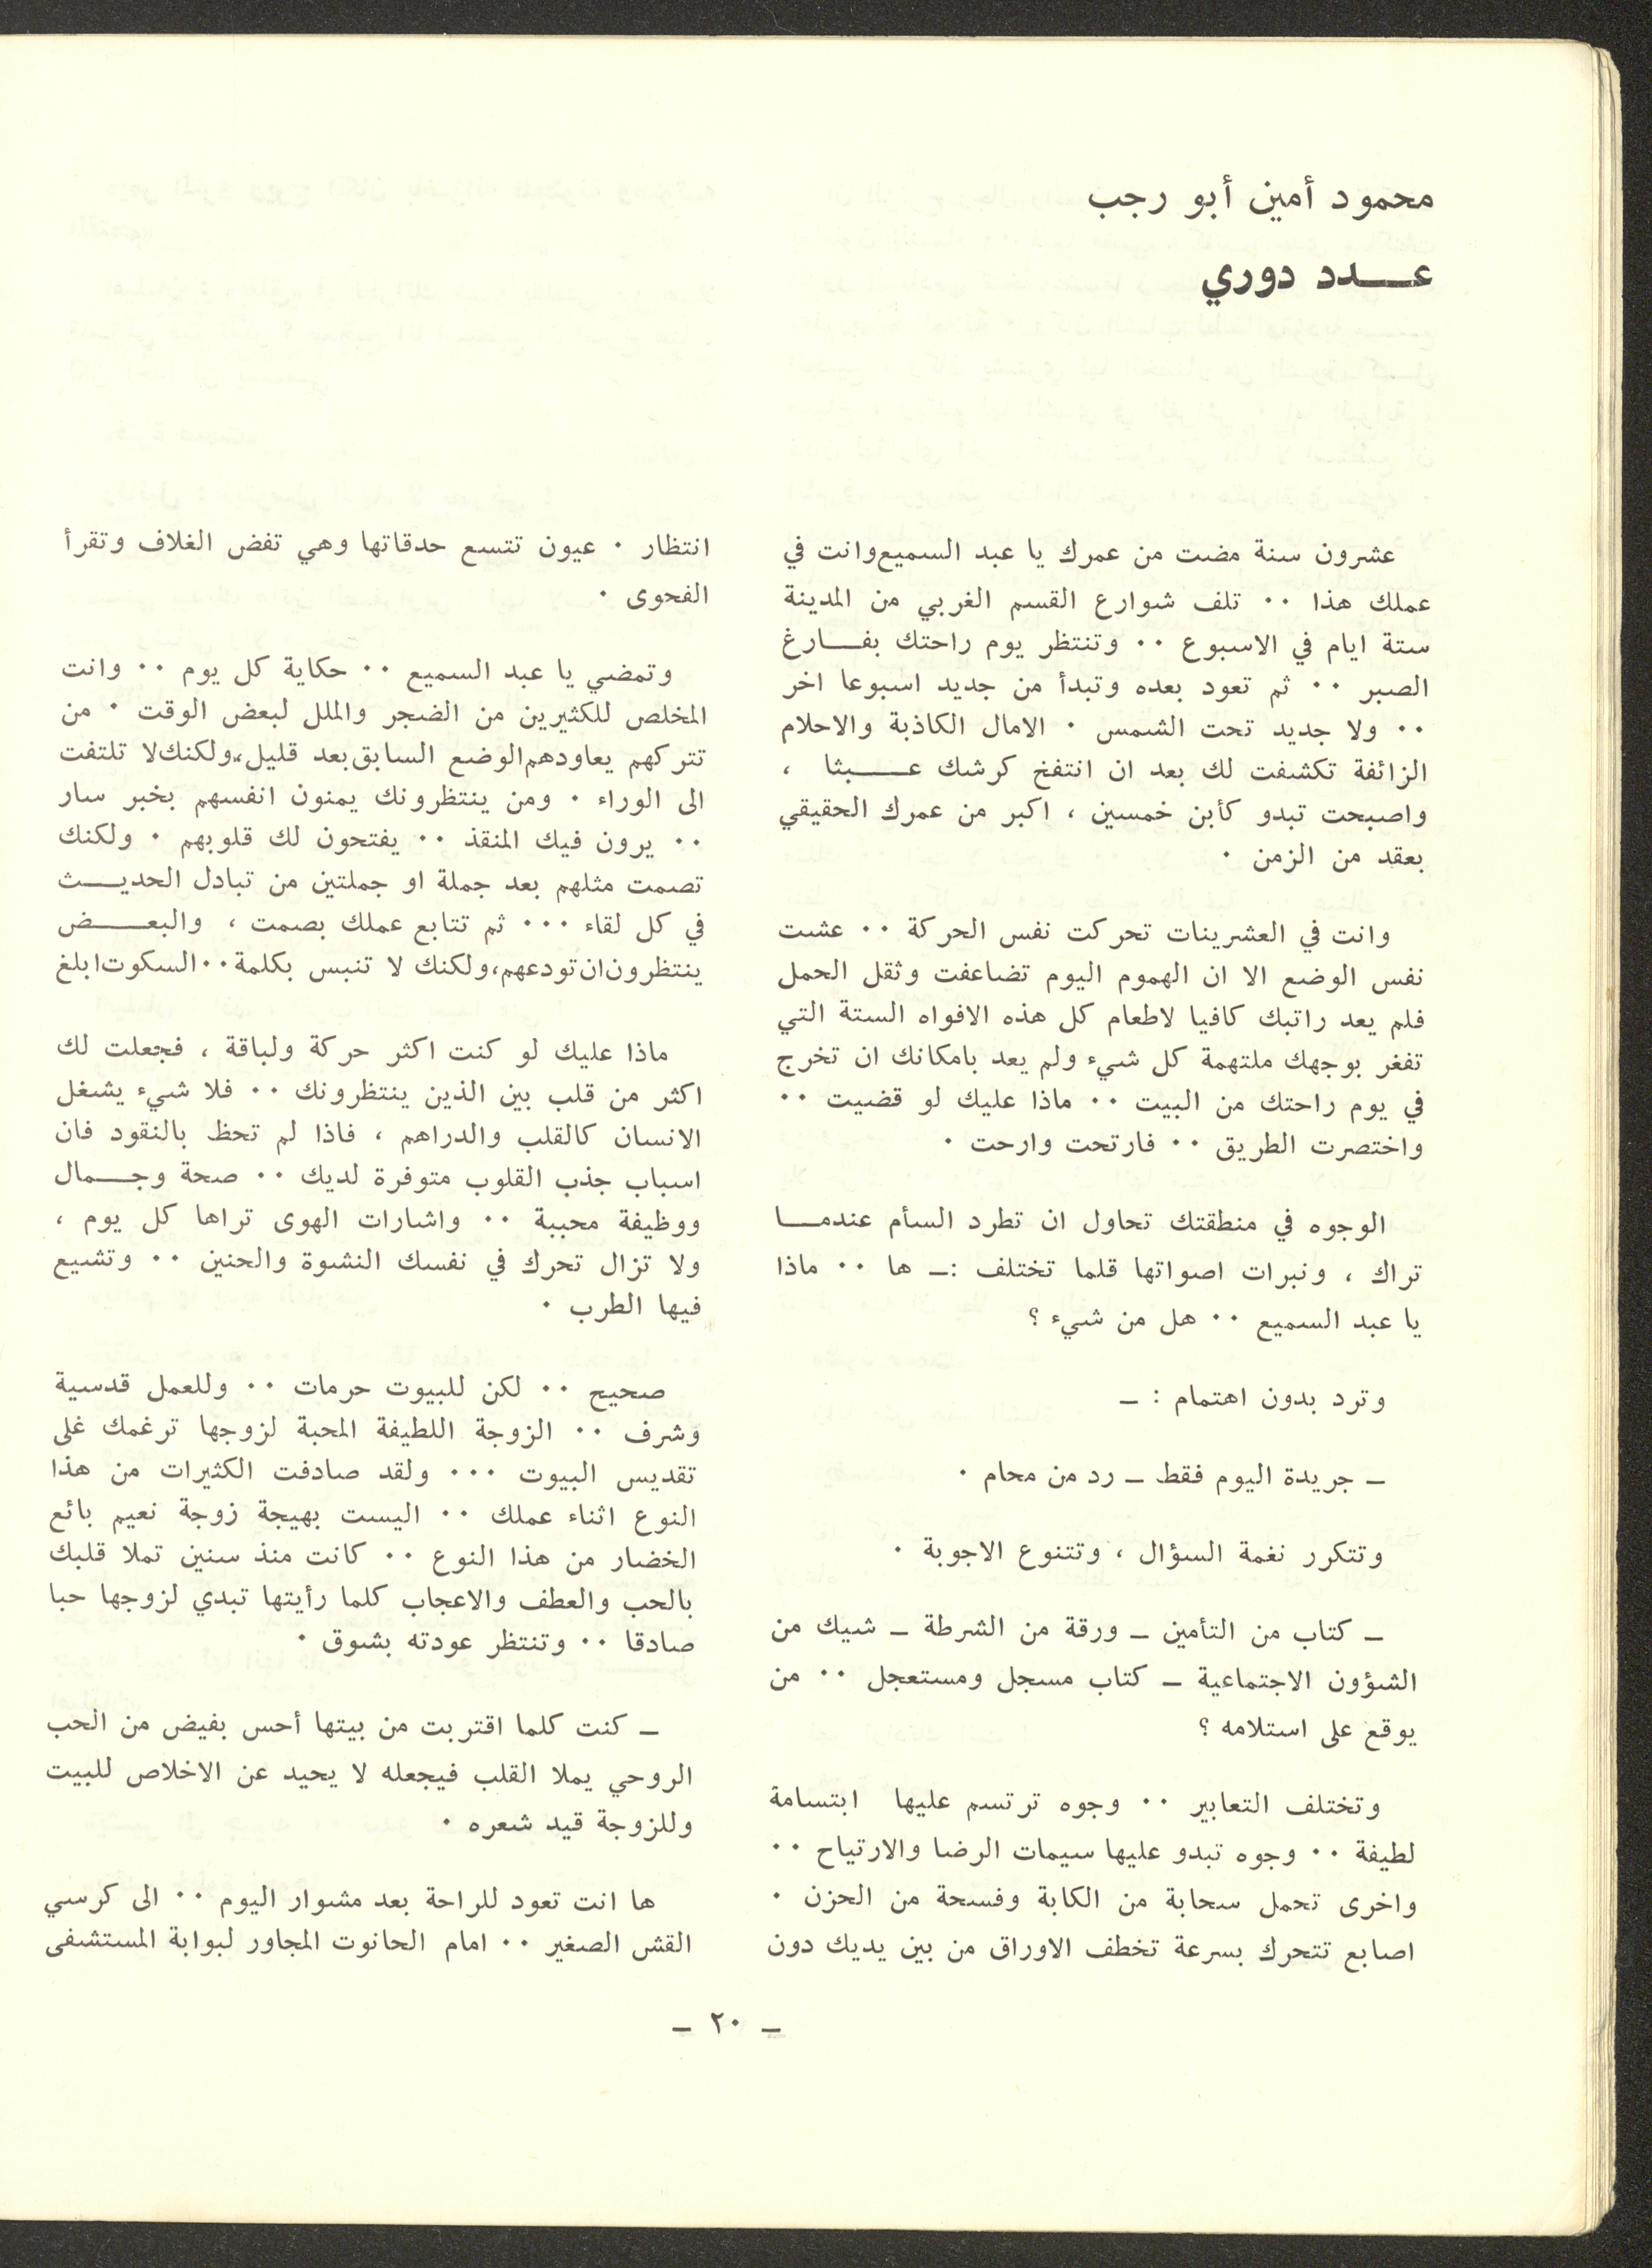 محمود أمين أبو رجب
عـــدد دوري
عشرون سنة مضت من عمرك يا عبد السميع وانت في
عملك هذا ٠٠ تلف شوارع القسم الغربي من المدينة
ستة ايام في الاسبوع ٠٠ وتنتظر يوم راحتك بفــارغ
الصبر ٠٠ ثم تعود بعده وتبدأ من جديد اسبوعا اخر
٠٠ ولا جديد تحت الشمس ٠ الامال الكاذبة والاحلام
الزائفة تكشفت لك بعد ان انتفخ كرشك عـــبثا ،
واصبحت تبدو كأبن خمسين ، اكبر من عمرك الحقيقي
بعقد من الزمن ٠
وانت في العشرينات تحركت نفس الحركة ٠٠ عشت
نفس الوضع الا ان الهموم اليوم تضاعفت وثقل الحمل
فلم يعد راتبك كافيا لاطعام كل هذه الافواه الستة التي
تفغر بوجهك ملتهمة كل شيء ولم يعد بامكانك ان تخرج
في يوم راحتك من البيت ٠٠ ماذا عليك لو قضيت ٠٠
واختصرت الطريق ٠٠ فارتحت وارحت ٠
الوجوه في منطقتك تحاول ان تطرد السأم عندمــا
تراك ، ونبرات اصواتها قلما تختلف :ـ ها ٠٠ ماذا
يا عبد السميع ٠٠ هل من شيء ؟
وترد بدون اهتمام : ـ
ـ جريدة اليوم فقط ـ رد من محام ٠
وتتكرر نغمة السؤال ، وتتنوع الاجوبة ٠
ـ كتاب من التأمين ـ ورقة من الشرطة ـ شيك من
الشؤون الاجتماعية ـ كتاب مسجل ومستعجل ٠٠ من
يوقع على استلامه ؟
وتختلف التعابير ٠٠ وجوه ترتسم عليها ابتسامة
لطيفة ٠٠ وجوه تبدو عليها سيمات الرضا والارتياح ٠٠
واخرى تحمل سحابة من الكابة وفسحة من الحزن ٠
اصابع تتحرك بسرعة تخطف الاوراق من بين يديك دون
انتظار ٠ عيون تتسع حدقاتها وهي تفض الغلاف وتقرأ
الفحوى ٠
وتمضي يا عبد السميع ٠٠ حكاية كل يوم ٠٠ وانت
المخلص للكثيرين من الضجر والملل لبعض الوقت ٠ من
تتركهم يعاودهم الوضع السابق بعد قليل، ولكنك لا تلتفت
الى الوراء ٠ ومن ينتظرونك يمنون انفسهم بخبر سار
٠٠ يرون فيك المنقذ ٠٠ يفتحون لك قلوبهم ٠ ولكنك
تصمت مثلهم بعد جملة او جملتين من تبادل الحديــث
في كل لقاء ٠٠٠ ثم تتابع عملك بصمت ، والبعــــض
ينتظرون ان تودعهم، ولكنك لا تنبس بكلمة ٠٠ السكوت ابلغ
ماذا عليك لو كنت اكثر حركة ولباقة ، فجعلت لك
اكثر من قلب بين الذين ينتظرونك ٠٠ فلا شيء يشغل
الانسان كالقلب والدراهم ، فاذا لم تحظ بالنقود فان
اسباب جذب القلوب متوفرة لديك ٠٠ صحة وجــمال
ووظيفة محببة ٠٠ واشارات الهوى تراها كل يوم ،
ولا تزال تحرك في نفسك النشوة والحنين ٠٠ وتشيع
فيها الطرب ٠
صحيح ٠٠ لكن للبيوت حرمات ٠٠ وللعمل قدسية
وشرف ٠٠ الزوجة اللطيفة المحبة لزوجها ترغمك غلى
تقديس البيوت ٠٠٠ ولقد صادفت الكثيرات من هذا
النوع اثناء عملك ٠٠ اليست بهيجة زوجة نعيم بائع
الخضار من هذا النوع ٠٠ كانت منذ سنين تملا قلبك
بالحب والعطف والاعجاب كلما رأيتها تبدي لزوجها حبا
صادقا ٠٠ وتنتظر عودته بشوق ٠
ـ كنت كلما اقتربت من بيتها أحس بفيض من الحب
الروحي يملا القلب فيجعله لا يحيد عن الاخلاص للبيت
وللزوجة قيد شعره ٠
ها انت تعود للراحة بعد مشوار اليوم ٠٠ الى كرسي
القش الصغير ٠٠ امام الحانوت المجاور لبوابة المستشفى
ـ ٢٠ ـ